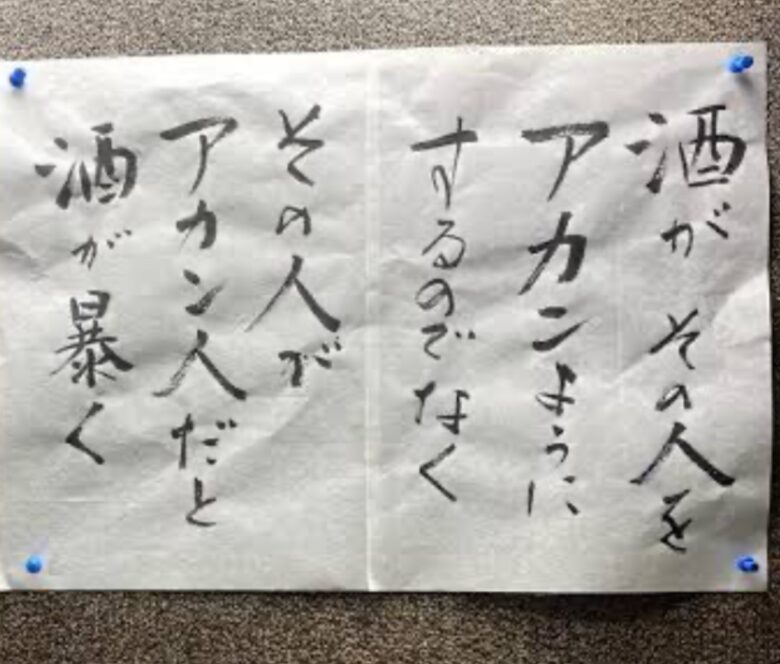 酒がその人を
アカンように
するのでなく
その人が
アカン人だと
酒が暴く